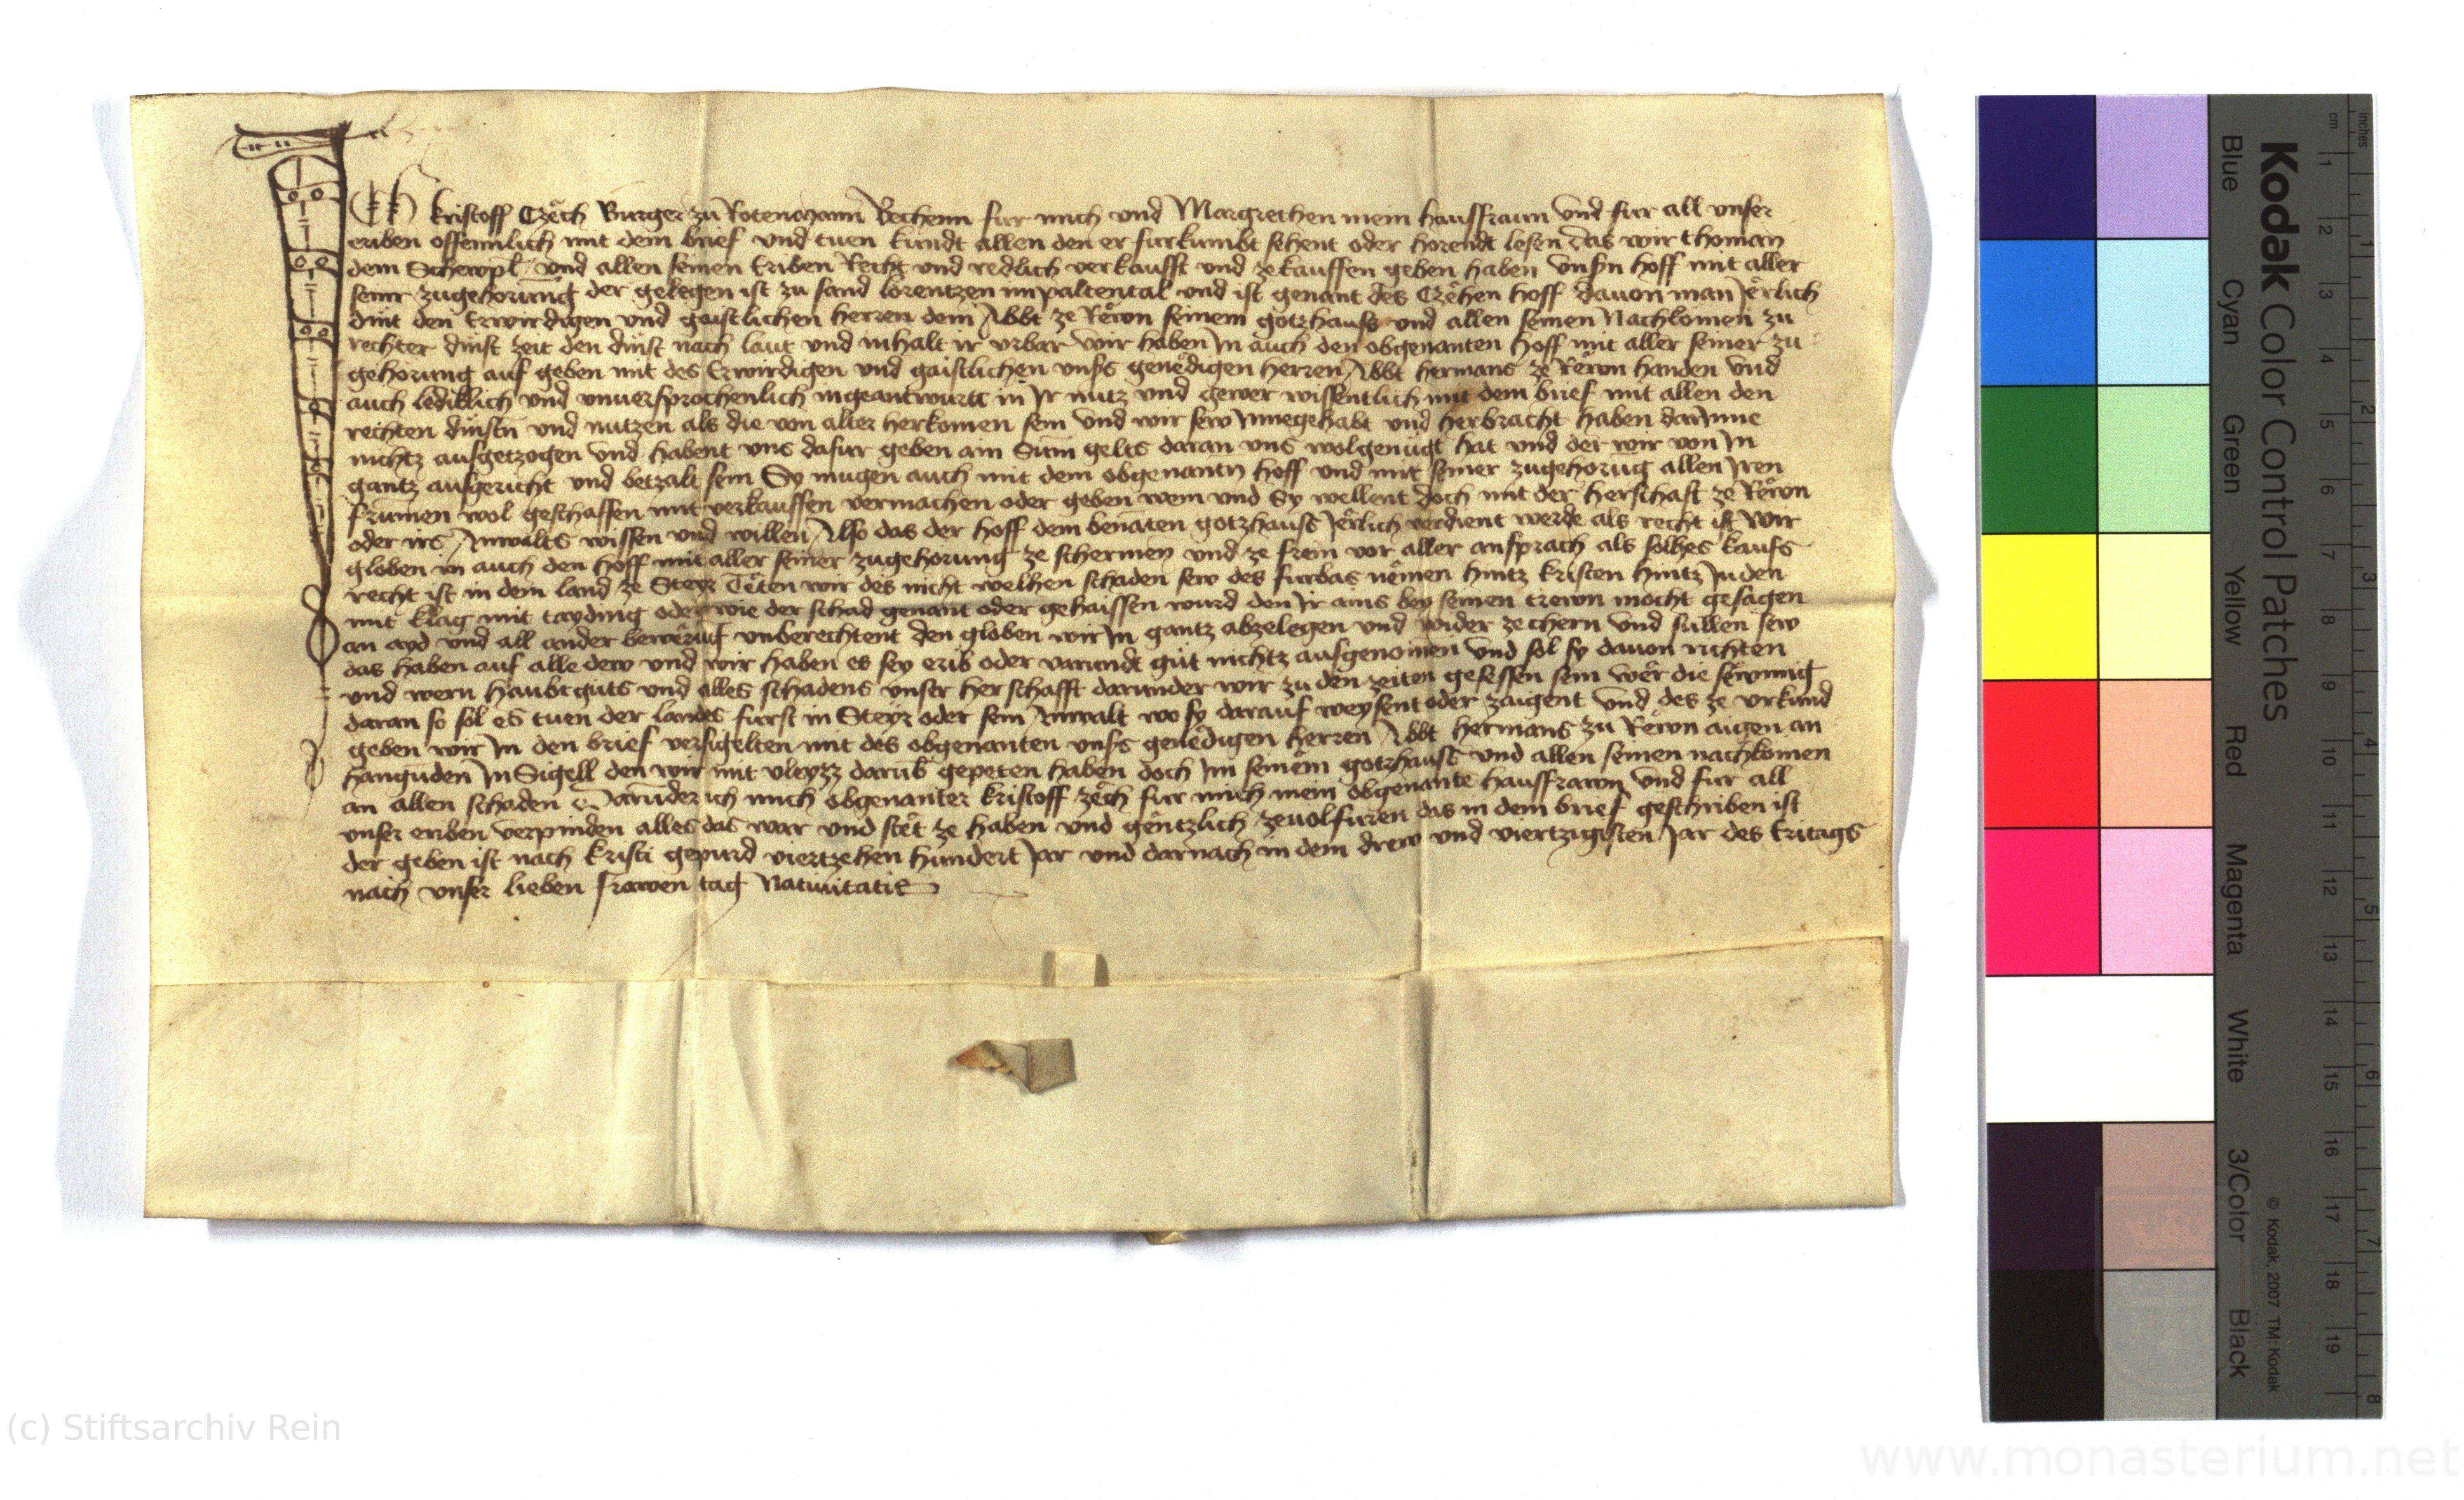 Ich kristoff Czêch Burger zu Rotenmann Vechenn fur mich und Margrethen mein hausfraun Vnd fur all vnser
eriben offennlich mit dem brief vnd tuen kundt allen den er furkumbt sehent oder horendt lesen Das wir thoman
dem Schewpl vnd allen seinen Eriben Recht vnd redlich verkaufft vnd ze kauffen geben haben Vnsn hoff mit aller
seinr zugehorung der gelegen ist zu sand lorentzen im paltental vnd ist genant des Czêhen hoff dauon man Jêrlich
dint den Erwirdigen vnd gaistlichen herren dem Abbt ze Rêwn seinem gotzhauss vnd allen seinen Nachkomen zu
rechter dinst zeit den dinst nach laut vnd inhalt ir vrbar wir haben In auch den obgenanten hoff mit aller seiner zu
gehorung auf geben mit des Erwirdigen vnd gaistlichen vnsers genêdigen herren Abbt hermans ze Rêwn handen Vnd
auch lediklich vnd vnuersprochenlich ingeantwurtt in Ir nutz vnd gewer wissentlich mit dem brief mit allen den
rechten dinstn vnd nutzen als die von alter herkomen sein Vnd wir sew Innegehabt vnd herbracht haben darInne
nichtz ausgetzogen Vnd habent vns dafur geben ain Sum gelts daran vns wolgenugt hat vnd der wir von In
gantz ausgericht vnd betzalt sein Sy mugen auch mit dem obgenantn hoff vnd mit seiner zugehorug allen Iren
frumen wol geschaffen mit verkauffen vermachen oder geben wem vnd Sy wellent doch mit der herschaft ze Rêwn
oder irs Anwalts wissen vnd willen Also das der hoff dem benaten gotzhauss Jêrlich verdient werde als recht ist Wir
globen in auch den hoff mit aller seiner zugehorung ze schermen vnd ze frein vor aller ansprach als solhes kaufs
recht ist in dem land ze Steyr Têten wir des nicht welhen schaden sew des furbas nêmen hintz kristen hintz Juden
mit klag mit tayding oder wie der schad genant oder gehaissen wurd den Ir ains bey seinen trewn mocht gesagen
an ayd vnd all ander bewêrug vnberechtent den globen wir In gantz abzelegen vnd wider ze chern Vnd sullen sew
das haben auf alle dew vnd wir haben es sey erib oder varundt gut nichtz ausgenomen Vnd sol sy dauon richten
vnd wern haubtguts vnd alles schadens vnser herschafft darunder wir zu den zeiten gesessen sein wêr die sêwmig
daran so sol es tuen der landes furst in Steyr oder sein Anwalt wo sy darauf weysent oder zaigent Vnd des ze vrkund
geben wir In den brief versigelten mit des obgenanten vnsers genêdigen herren Abbt hermans zu Rêwn aigen an
hangunden InSigell den wir mit vleyzz darub gepeten haben doch Im seinem gotzhauss vnd allen seinen nachkomen
an allen schaden Darunder ich mich obgenanter kristoff zêch fur mich mein obgenante hausfrawn vnd fur all
vnser eriben verpinden alles das war vnd stêt ze haben vnd gêntzlich zeuolfuren das in dem brief geschriben ist
der geben ist nach kristi gepurd viertzehen hundert Jar vnd darnach in dem drew vnd viertzigisten Jar des Eritags
nach vnser lieben frawen tag Natiuitatis
Kodak Color Control Patches
Blue Cyan Green Yellow Red Magenta White 3/Color Black
© Kodak, 2007 TM: Kodak
inches 1 2 3 4 5 6 7 8
cm 1 2 3 4 5 6 7 8 9 10 11 12 13 14 15 16 17 18 19
(c) Stiftsarchiv Rein
www.monasterium.net